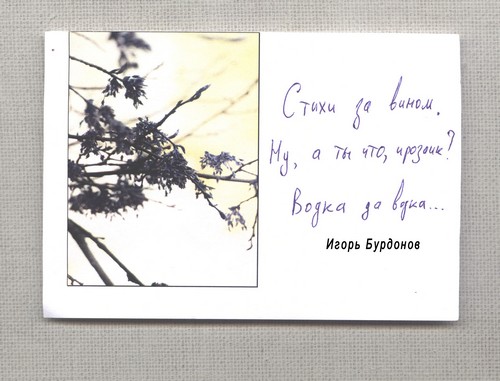 Стихи за вином.
Ну, а ты что, прозаик?
Водка да водка...
Игорь Бурдонов